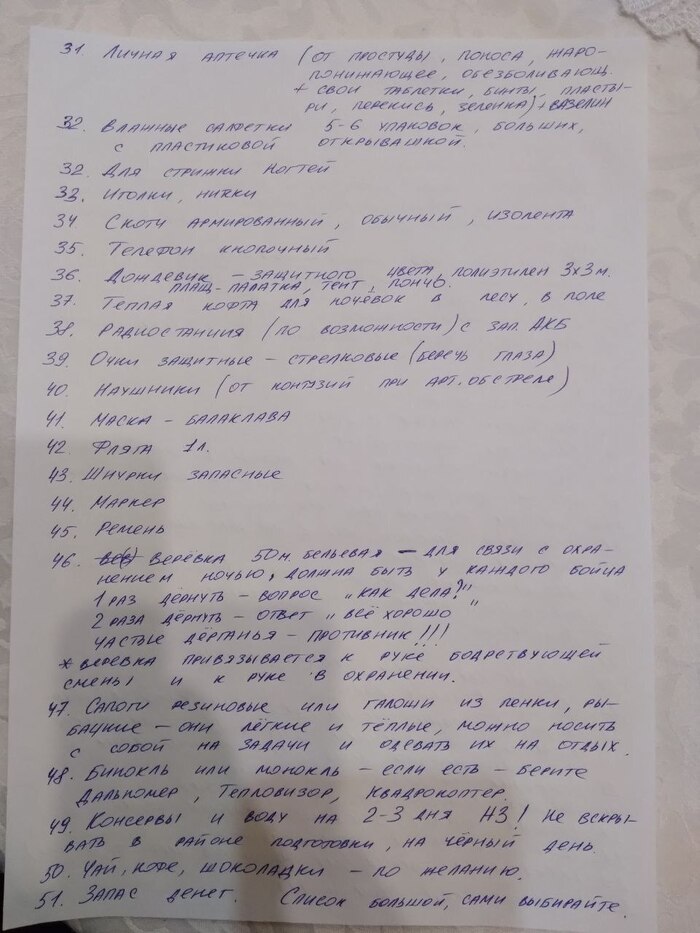 31. Личная аптечка (от простуды, поноса, жаро-
понижающее, обезболивающ.
+ свои таблетки, бинты, пласты-
ри, перекись, зеленка) + вазелин
32. Влажные салфетки 5-6 упаковок, больших,
с пластиковой открывашкой.
32. Для стрижки ногтей
33. Иголки, нитки
34 Скотч армированный, обычный, изолента
35. Телефон кнопочный
36. Дождевик – защитного цвета, полиэтилен 3х3м.
плащ-палатка, тент, пончо.
37. Теплая кофта для ночёвок в лесу, в поле
38. Радиостанция (по возможности) с зап. АКБ
39. Очки защитные – стрелковые (беречь глаза)
40. Наушники (от контузий при арт. обстреле)
41. Маска – балаклава
42. Фляга 1л.
43. Шнурки запасные
44. Маркер
45. Ремень
46. верёвка 50м. бельевая – для связи с охра-
нением ночью, должна быть у каждого бойца
1 раз дернуть – вопрос „как дела?"
2 раза дёрнуть – ответ „всё хорошо"
частые дёрганья – противник!!!
* веревка привязывается к руке бодрствующей
смены и к руке в охранении.
47. Сапоги резиновые или галоши из пенки, ры-
бацкие – они лёгкие и тёплые, можно носить
с собой на задачи и одевать их на отдых.
48. Бинокль или монокль – если есть – берите
Дальномер, Тепловизор, Квадрокоптер.
49. Консервы и воду на 2-3 дня НЗ! Не вскры-
вать в районе подготовки, на чёрный день.
50. Чай, кофе, шоколадки – по желанию.
51. Запас денег. Список большой, сами выбирайте.